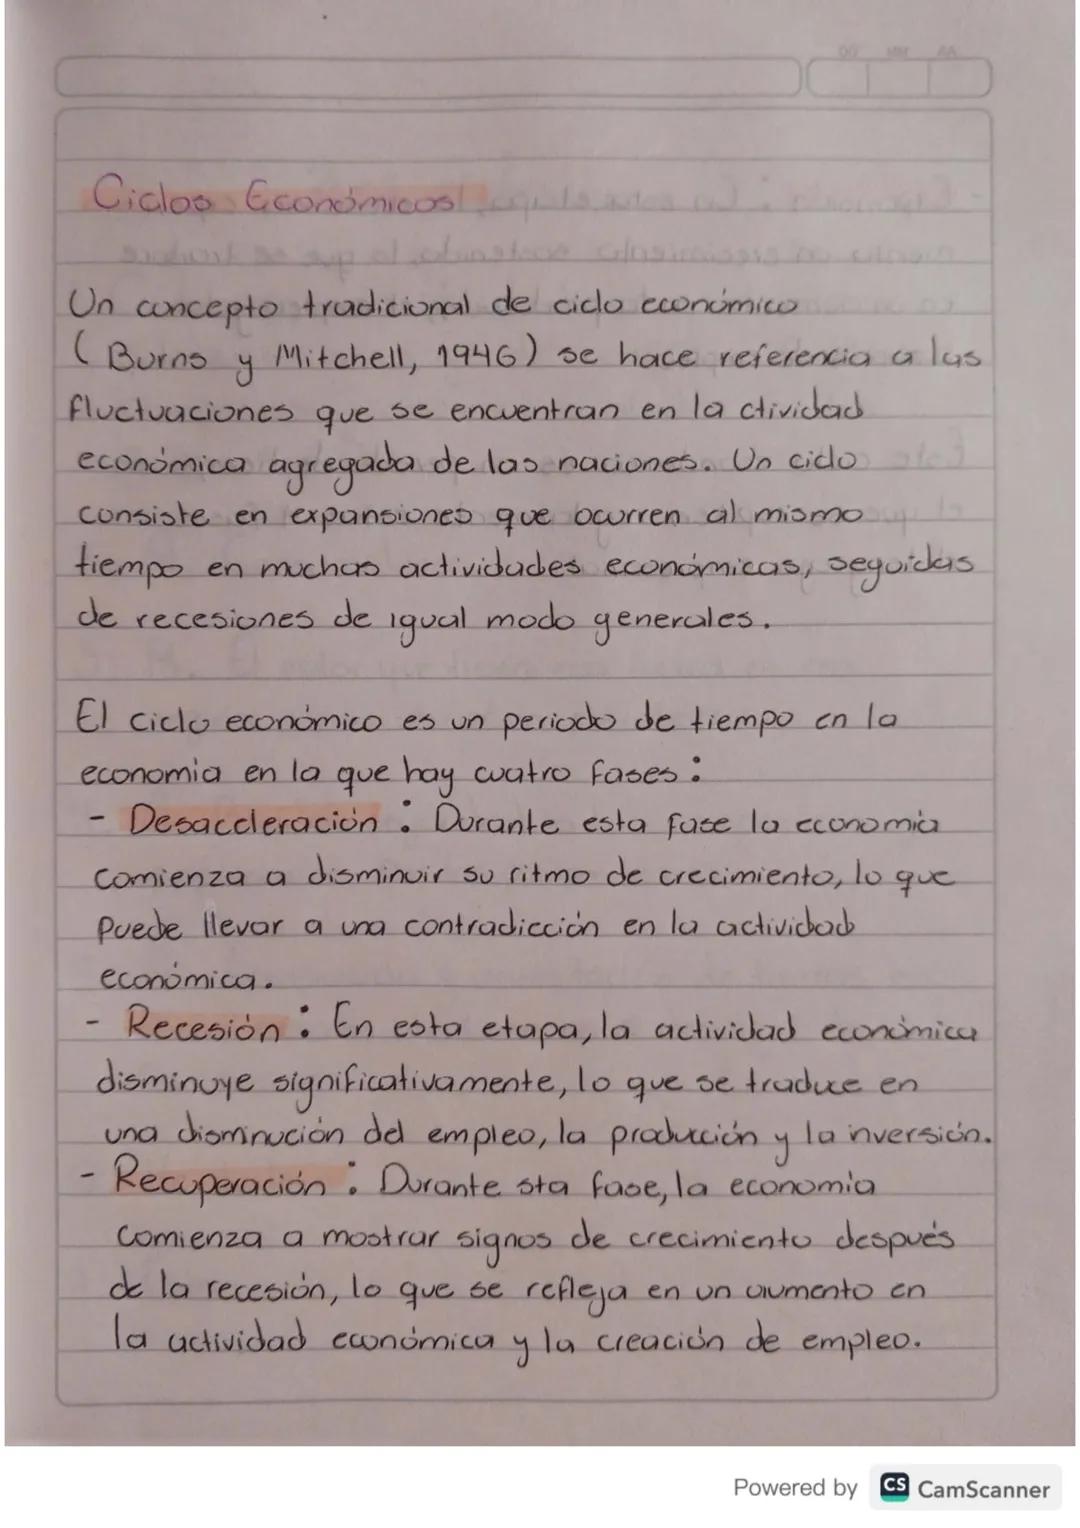 Ciclos Económicos
Un concepto tradicional de ciclo económico
(Burns y Mitchell, 1946) se hace referencia a las
fluctuaciones que se encuentran en la ctividad
económica agregada de las naciones. Un ciclo
consiste en expansiones que ocurren al mismo
tiempo en muchas actividades económicas, seguidas
de recesiones de igual modo generales.
El ciclo económico es un periodo de tiempo en la
economia en la que hay cuatro fases:
- Desaceleración: Durante esta fase la economia
comienza a disminuir su ritmo de crecimiento, lo que
puede llevar a una contradicción en la actividad
económica.
- Recesión: En esta etapa, la actividad económica
disminuye significativamente, lo que se traduce en
una disminución del empleo, la producción y la inversión.
- Recuperación: Durante sta fase, la economia
comienza a mostrar signos de crecimiento después
de la recesión, lo que se refleja en un aumento en
la actividad económica y la creación de empleo.
Powered by CS CamScanner